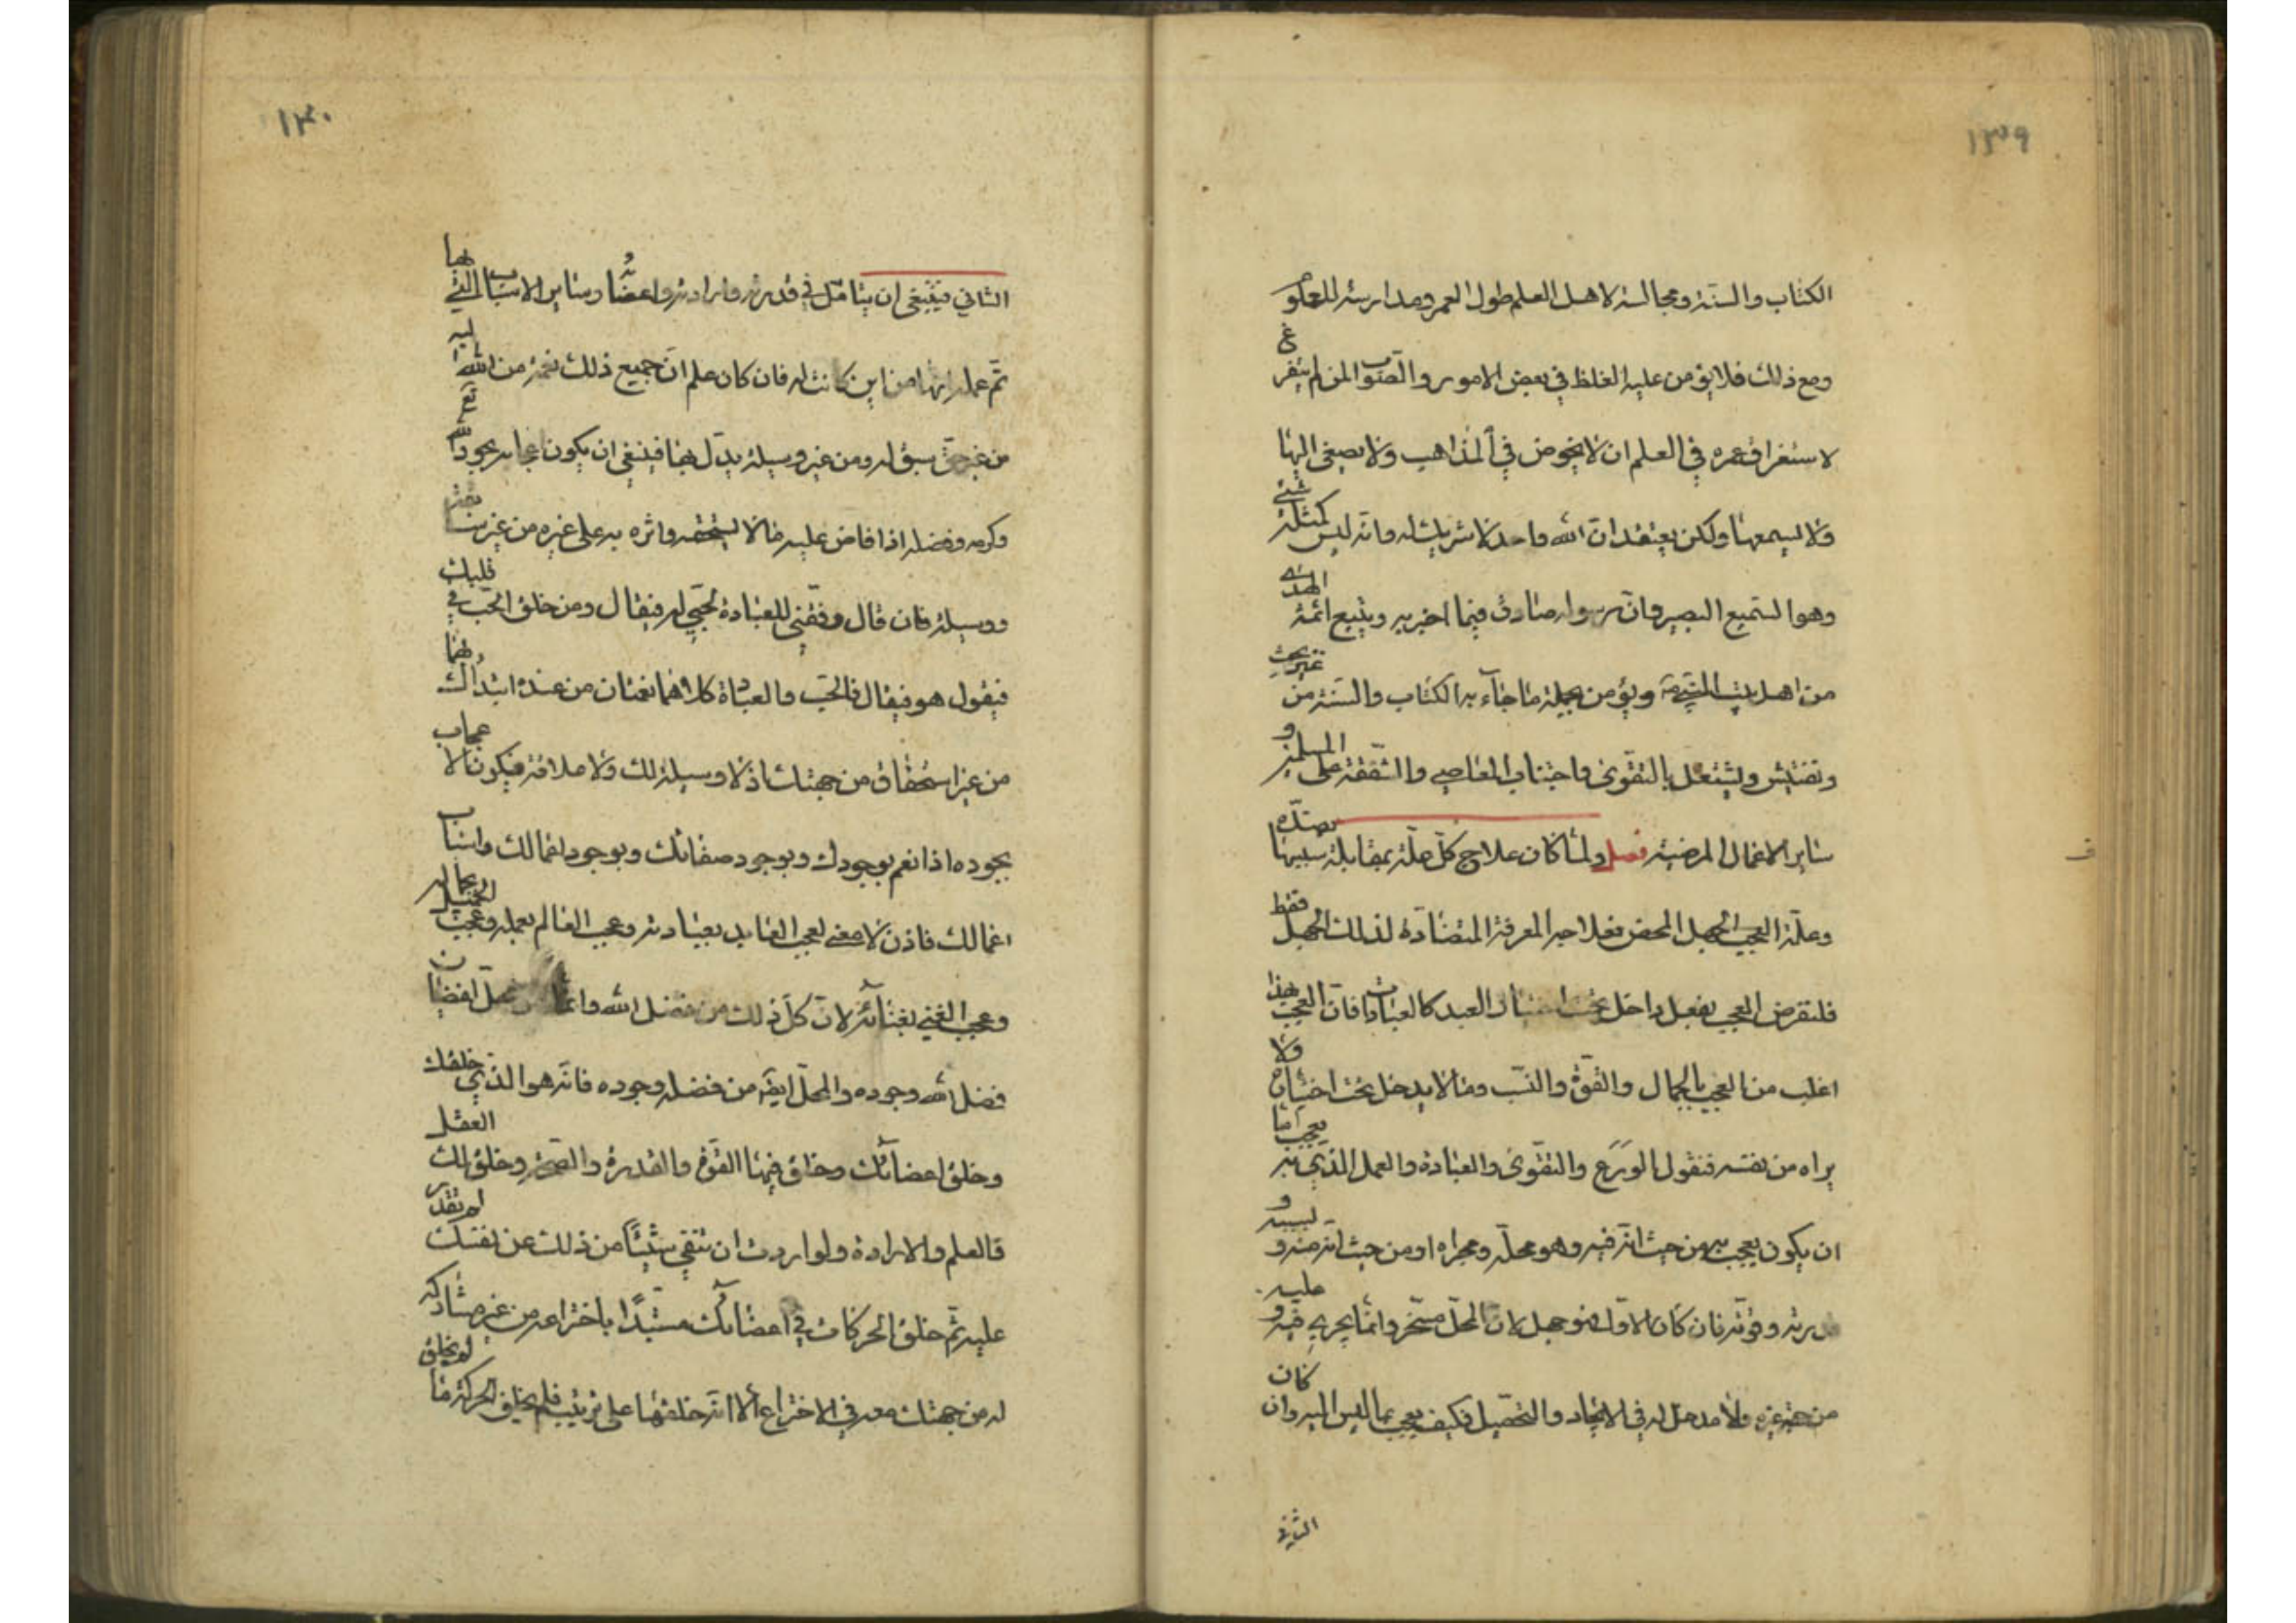 ١٣٩
الكتاب والسنة ومجالسة لاهل العلم طول العمر ومدارسة للعلوم
ومع ذلك فلا يؤمن عليه الغلط في بعض الامور والصواب لمن لم يتفرغ
لاستغراق عمره في العلم ان لا يخوض في المذاهب ولا يصغى اليها
ولا يسمعها ولكن يعتقد ان الله واحد لا شريك له وانه ليس كمثله شئ
وهو السميع البصير وان رسوله صادق فيما اخبر به ويتبع ائمة الهدى
من اهل بيت النبي ص ويؤمن بجملة ما جآء به الكتاب والسنة من غير بحث
وتفتيش ويشتغل بالتقوى واجتناب المعاصي والشفقة على المسلمين و
ساير الاعمال المرضية فصل ولما كان علاج كل علة بمقابلة سببها بضده
وعلة العجب الجهل المحض فعلاجه المعرفة المتضادة لذلك الجهل فقط
فلنفرض العجب بفعل داخل تحت اختيار العبد كالعبادات فان العجب بهذا
اغلب من العجب بالجمال والقوة والنسب وما لا يدخل تحت اختياره ولا
يراه من نفسه فنقول الورع والتقوى والعبادة والعمل الذي به يعجب اما
ان يكون يعجب به من حيث انه فيه وهو محله ومجراه او من حيث انه منه و بسببه و
وقوته فان كان الاول فهو جهل لان المحل مسخر وانما يجري فيه و عليه
من جهة غيره ولا مدخل له في الايجاد والتحصيل فكيف يعجب بما ليس اليه وان كان
الثاني
١٣٠
الثاني فينبغي ان يتامل في قدرته وارادته واعضاؤه وساير الاسباب التي بها
تم عمله انها من اين كانت له فان كان علم ان جميع ذلك نعمة من الله اليه
من غير حق سبق له ومن غير وسيلة يدل بها فينبغي ان يكون اعجابه بجود الله تع
وكرمه وفضله اذا فاض عليه ما لا يستحقه واثره به على غيره من غير سابقة
ووسيلة فان قال وفقني للعبادة لحبي له فيقال ومن خلق الحب في قلبك
فيقول هو فيقال فالحب والعبادة كلاهما نعمتان من عنده ابتداك بهما
من غير استحقاق من جهتك اذ لا وسيلة لك ولا علاقة فيكون الاعجاب
بجوده اذ انعم بوجودك وبوجود صفاتك وبوجود اعمالك واسباب
اعمالك فاذن لا معنى لعجب العابد بعبادته وعجب العالم بعلمه وعجب الجميل بجماله
وعجب الغني بغنائه لان كل ذلك من فضل الله وانما محل لفيضان
فضل الله وجوده والمحل ايضا من فضله وجوده فانه هو الذي خلقك
وخلق اعضائك وخلق فيها القوة والقدرة والصحة وخلق لك العقل
فالعلم والارادة ولو اردت ان تنفي شيئا من ذلك عن نفسك لم تقدر
عليه ثم خلق الحركات في اعضائك مستبدا باختراعه من غير مشاركة
له من جهتك معه في الاختراع الا انه خلقها على ترتيب فلم يخلق الحركة ما لم يخلق